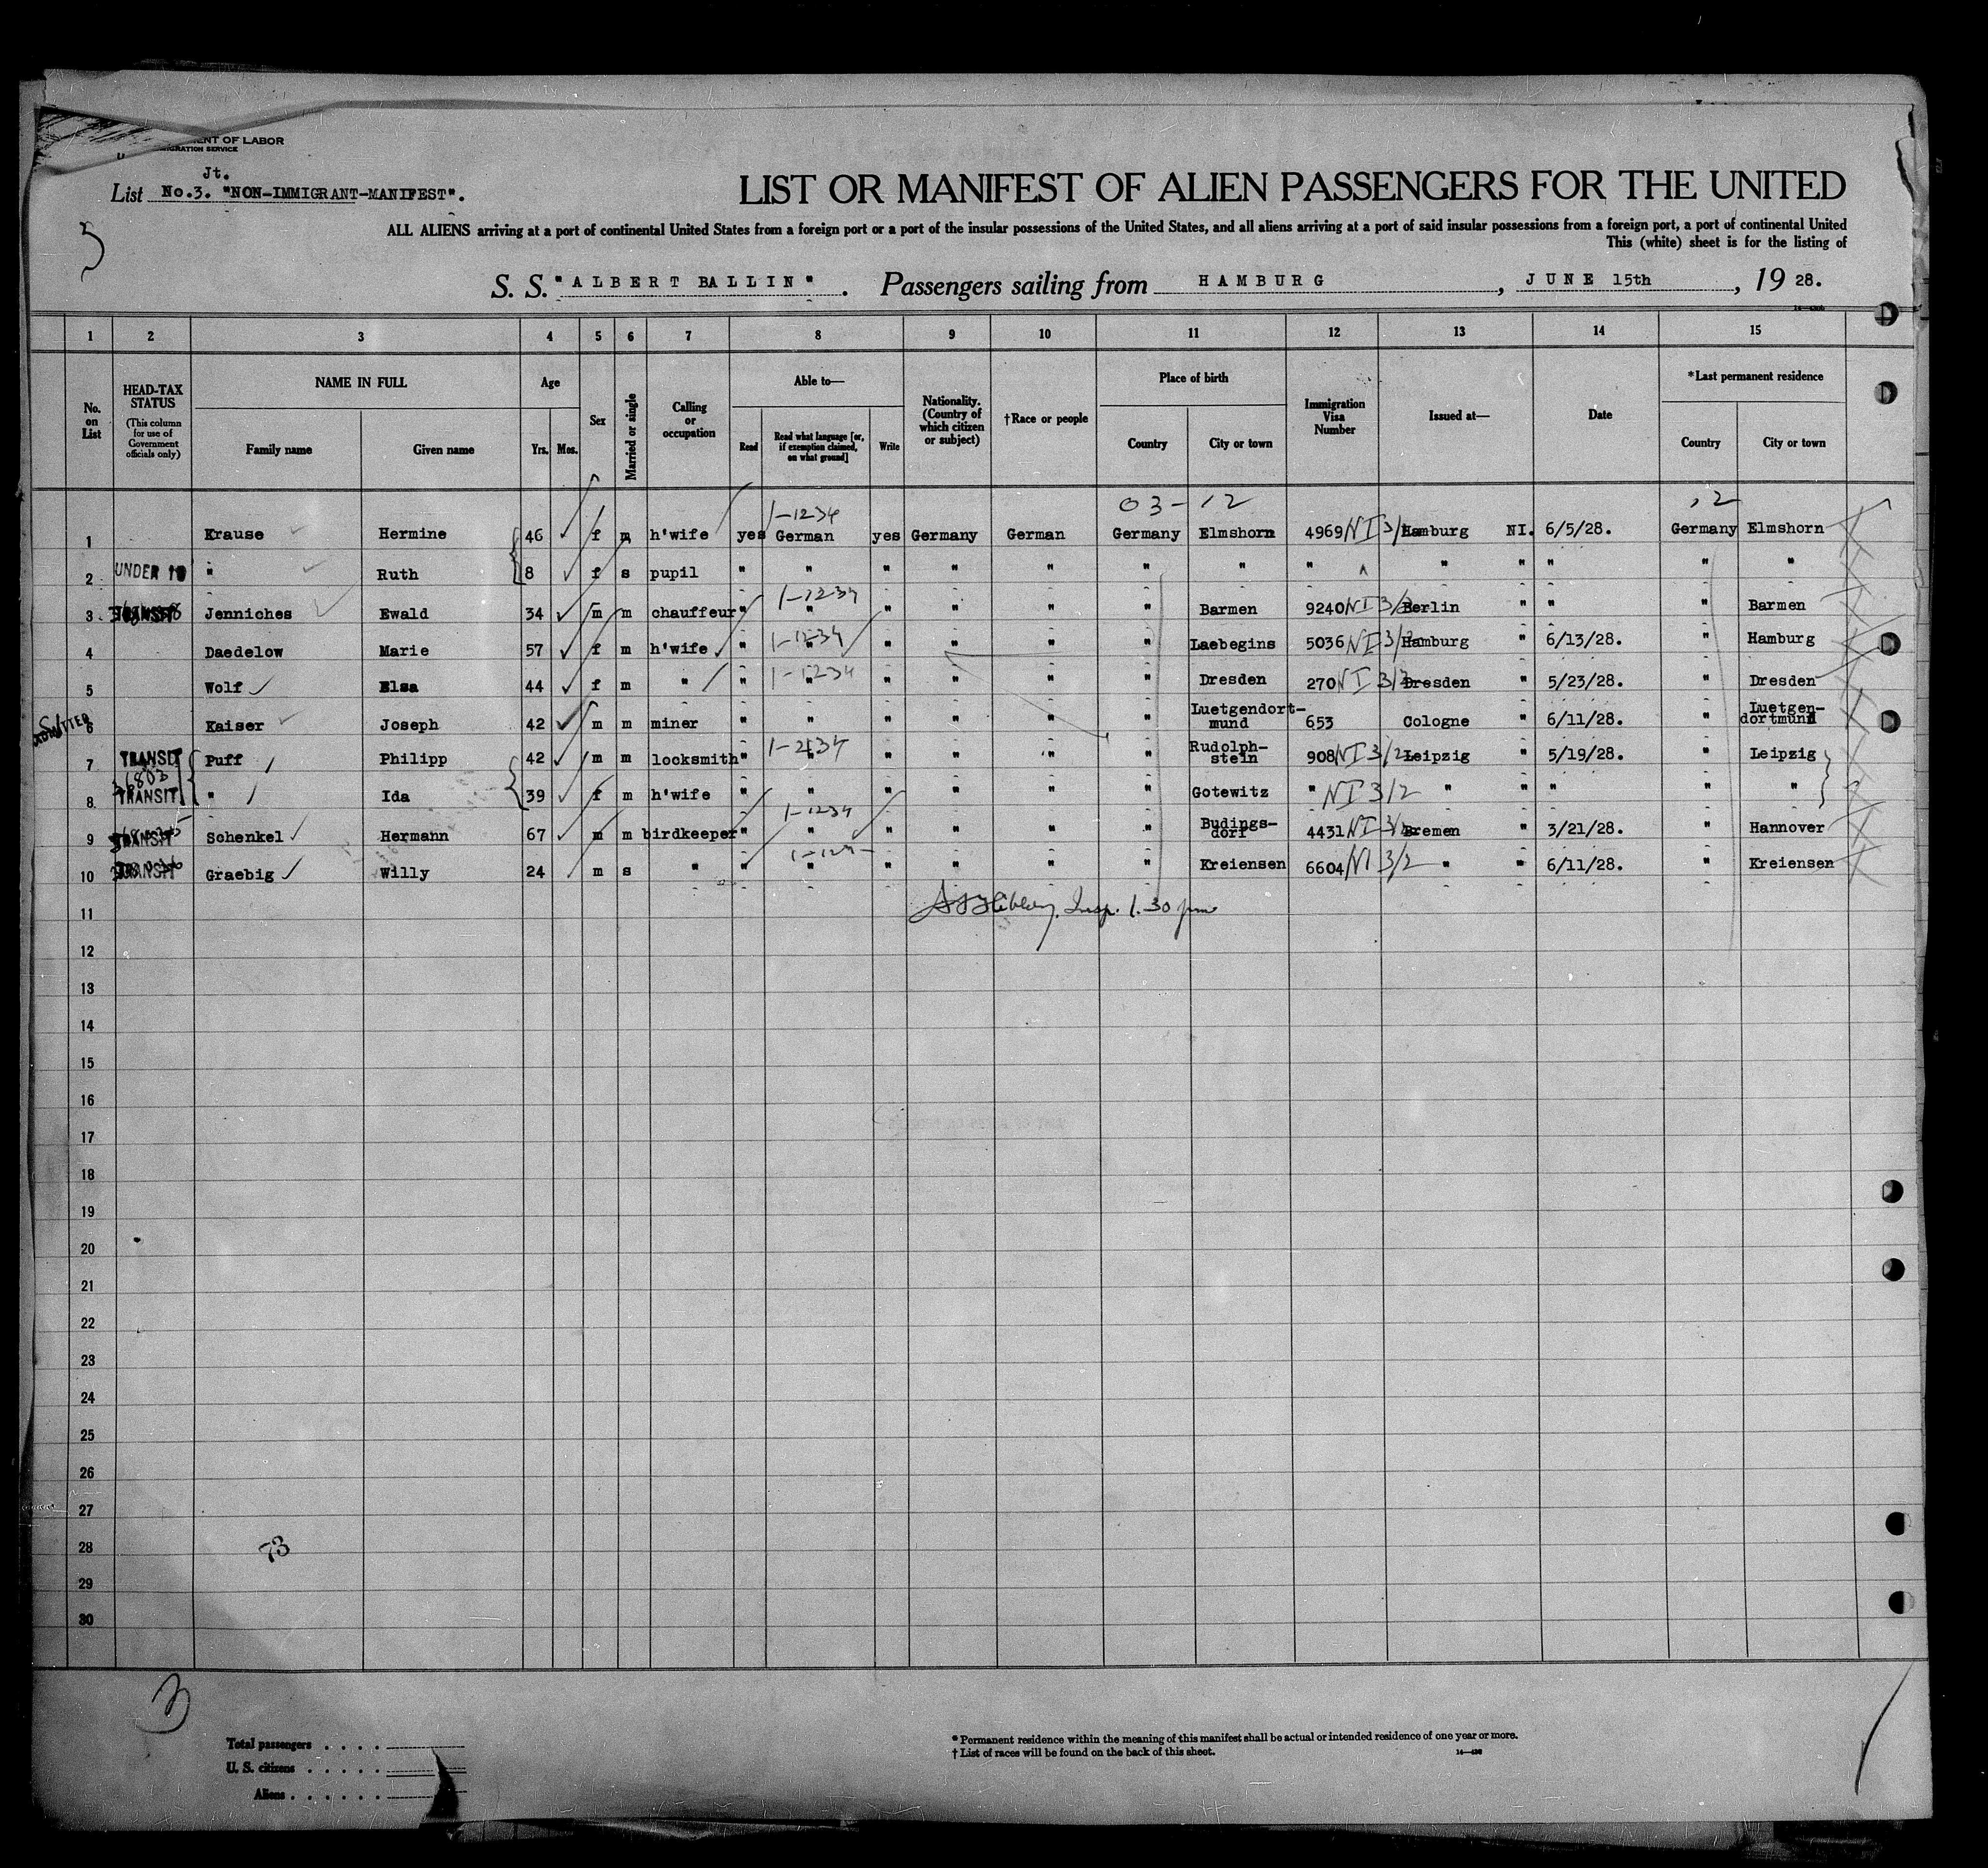 ENT OF LABOR
GRATION SERVICE
Jt.
List No.3. "NON-IMMIGRANT-MANIFEST".
LIST OR MANIFEST OF ALIEN PASSENGERS FOR THE UNITED
ALL ALIENS arriving at a port of continental United States from a foreign port or a port of the insular possessions of the United States, and all aliens arriving at a port of said insular possessions from a foreign port, a port of continental United
This (white) sheet is for the listing of
S. S. "ALBERT BALLIN". Passengers sailing from HAMBURG, JUNE 15th, 19 28.
1 2 3 4 5 6 7 8 9 10 11 12 13 14 15
No. on List
HEAD-TAX STATUS (This column for use of Government officials only)
NAME IN FULL Family name Given name
Age Yrs. Mos.
Sex
Married or single
Calling or occupation
Able to— Read Read what language [or, if exemption claimed, on what ground] Write
Nationality. (Country of which citizen or subject)
†Race or people
Place of birth Country City or town
Immigration Visa Number
Issued at—
Date
*Last permanent residence Country City or town
1-1234 03-12 12
1 Krause Hermine 46 f m h'wife yes German yes Germany German Germany Elmshorn 4969 NI 3/2 Hamburg NI. 6/5/28. Germany Elmshorn
2 UNDER 16 " Ruth 8 f s pupil " " " " " " " " " " " " "
1-1234
3 TRANSIT Jenniches Ewald 34 m m chauffeur " " " " " " Barmen 9240 NI 3/2 Berlin " " " Barmen
4 Daedelow Marie 57 f m h'wife " 1-1234 " " " " " Laebegins 5036 NI 3/2 Hamburg " 6/13/28. " Hamburg
5 Wolf Elsa 44 f m " " 1-1234 " " " " " Dresden 270 NI 3/2 Dresden " 5/23/28. " Dresden
ADMITTED
6 Kaiser Joseph 42 m m miner " " " " " " Luetgendort-mund 653 Cologne " 6/11/28. " Luetgen-dortmund
7 TRANSIT Puff Philipp 42 m m locksmith " 1-2134 " " " " " Rudolph-stein 908 NI 3/2 Leipzig " 5/19/28. " Leipzig
36803
8 TRANSIT " Ida 39 f m h'wife " " " " " " Gotewitz " NI 3/2 " " " " "
1-1234
9 TRANSIT Schenkel Hermann 67 m m birdkeeper " " " " " " Budings-dorf 4431 NI 3/2 Bremen " 3/21/28. " Hannover
10 TRANSIT Graebig Willy 24 m s " " " " " " " Kreiensen 6604 NI 3/2 " " 6/11/28. " Kreiensen
11 Insp. 1.30 pm
12
13
14
15
16
17
18
19
20
21
22
23
24
25
26
27
28
73
29
30
3
Total passengers . . . .
U. S. citizens . . . . .
Aliens . . . . . .
* Permanent residence within the meaning of this manifest shall be actual or intended residence of one year or more.
† List of races will be found on the back of this sheet.